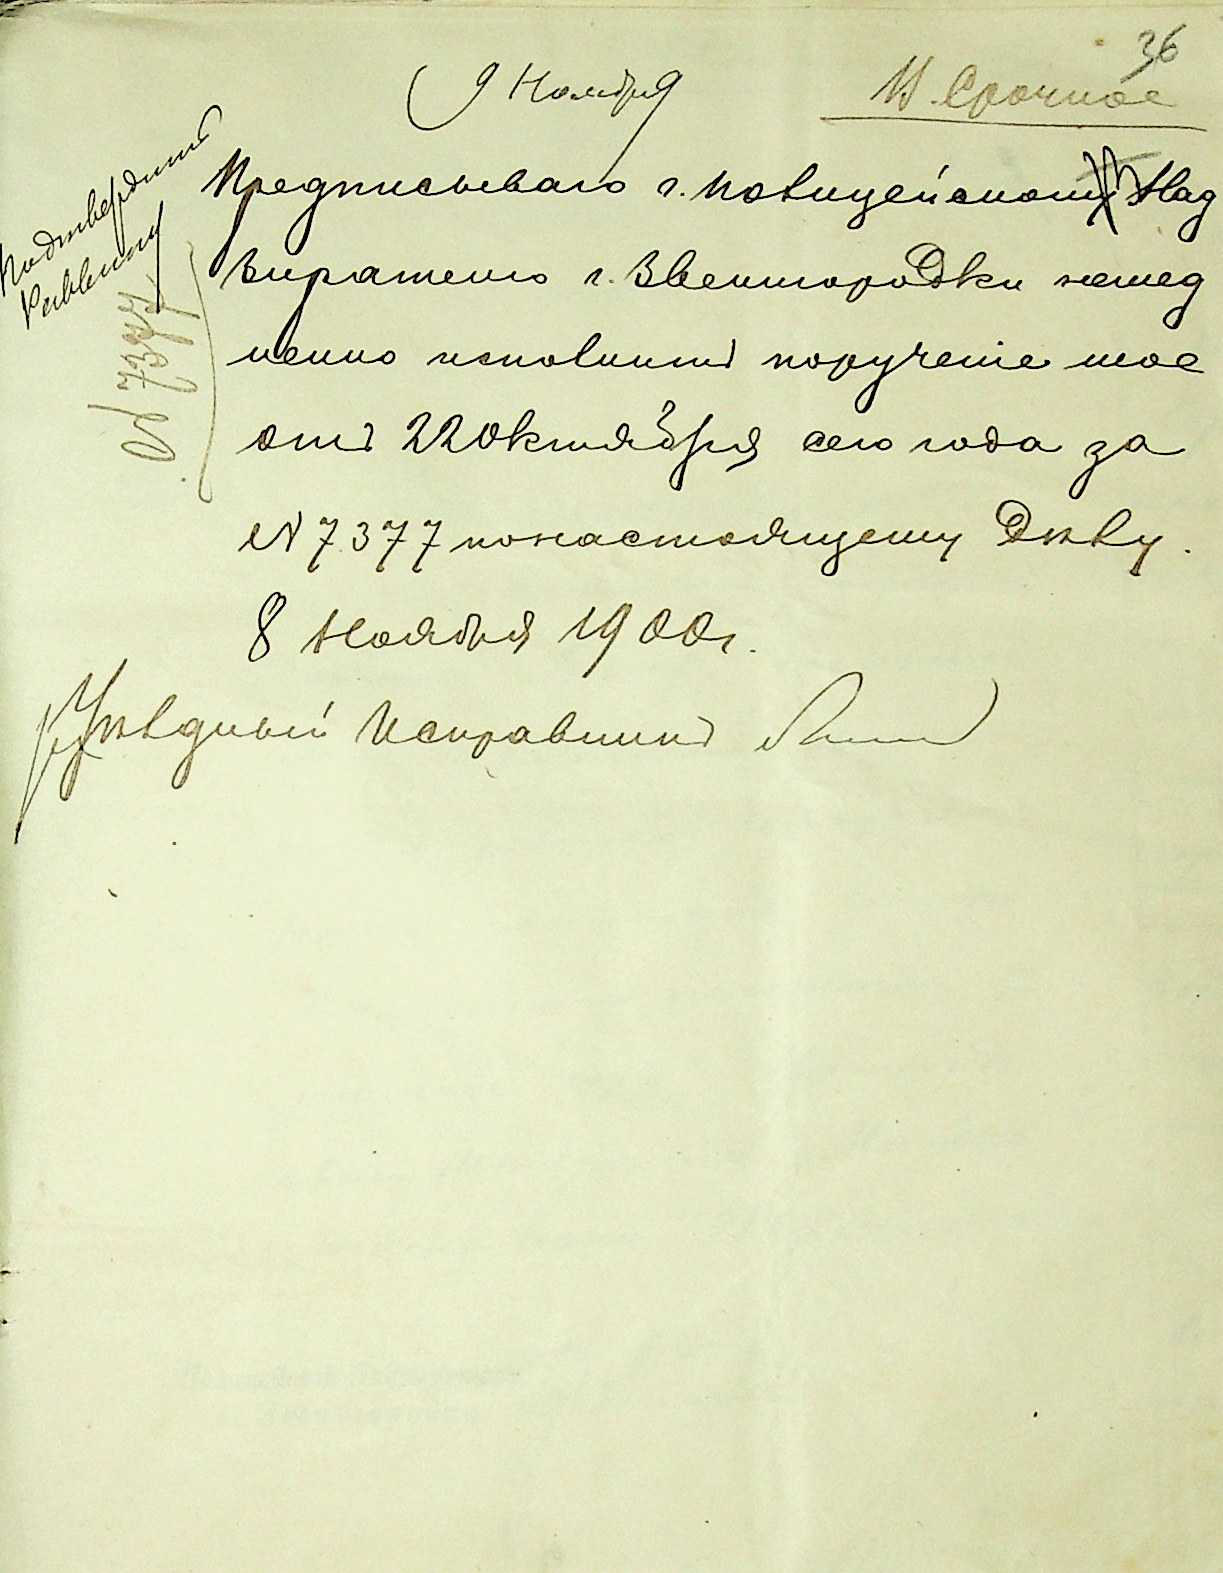 36
9 Ноября
И. Срочное
Подтвердить
Предписываю г. Полицейскому Над
зирателю г. Звенигородки немед
ленно исполнить порученіе мое
отъ 22 Октября сего года за
№ 7377 по настоящему Дѣлу.
8 Ноября 1900 г.
Уѣздный Исправникъ
7377